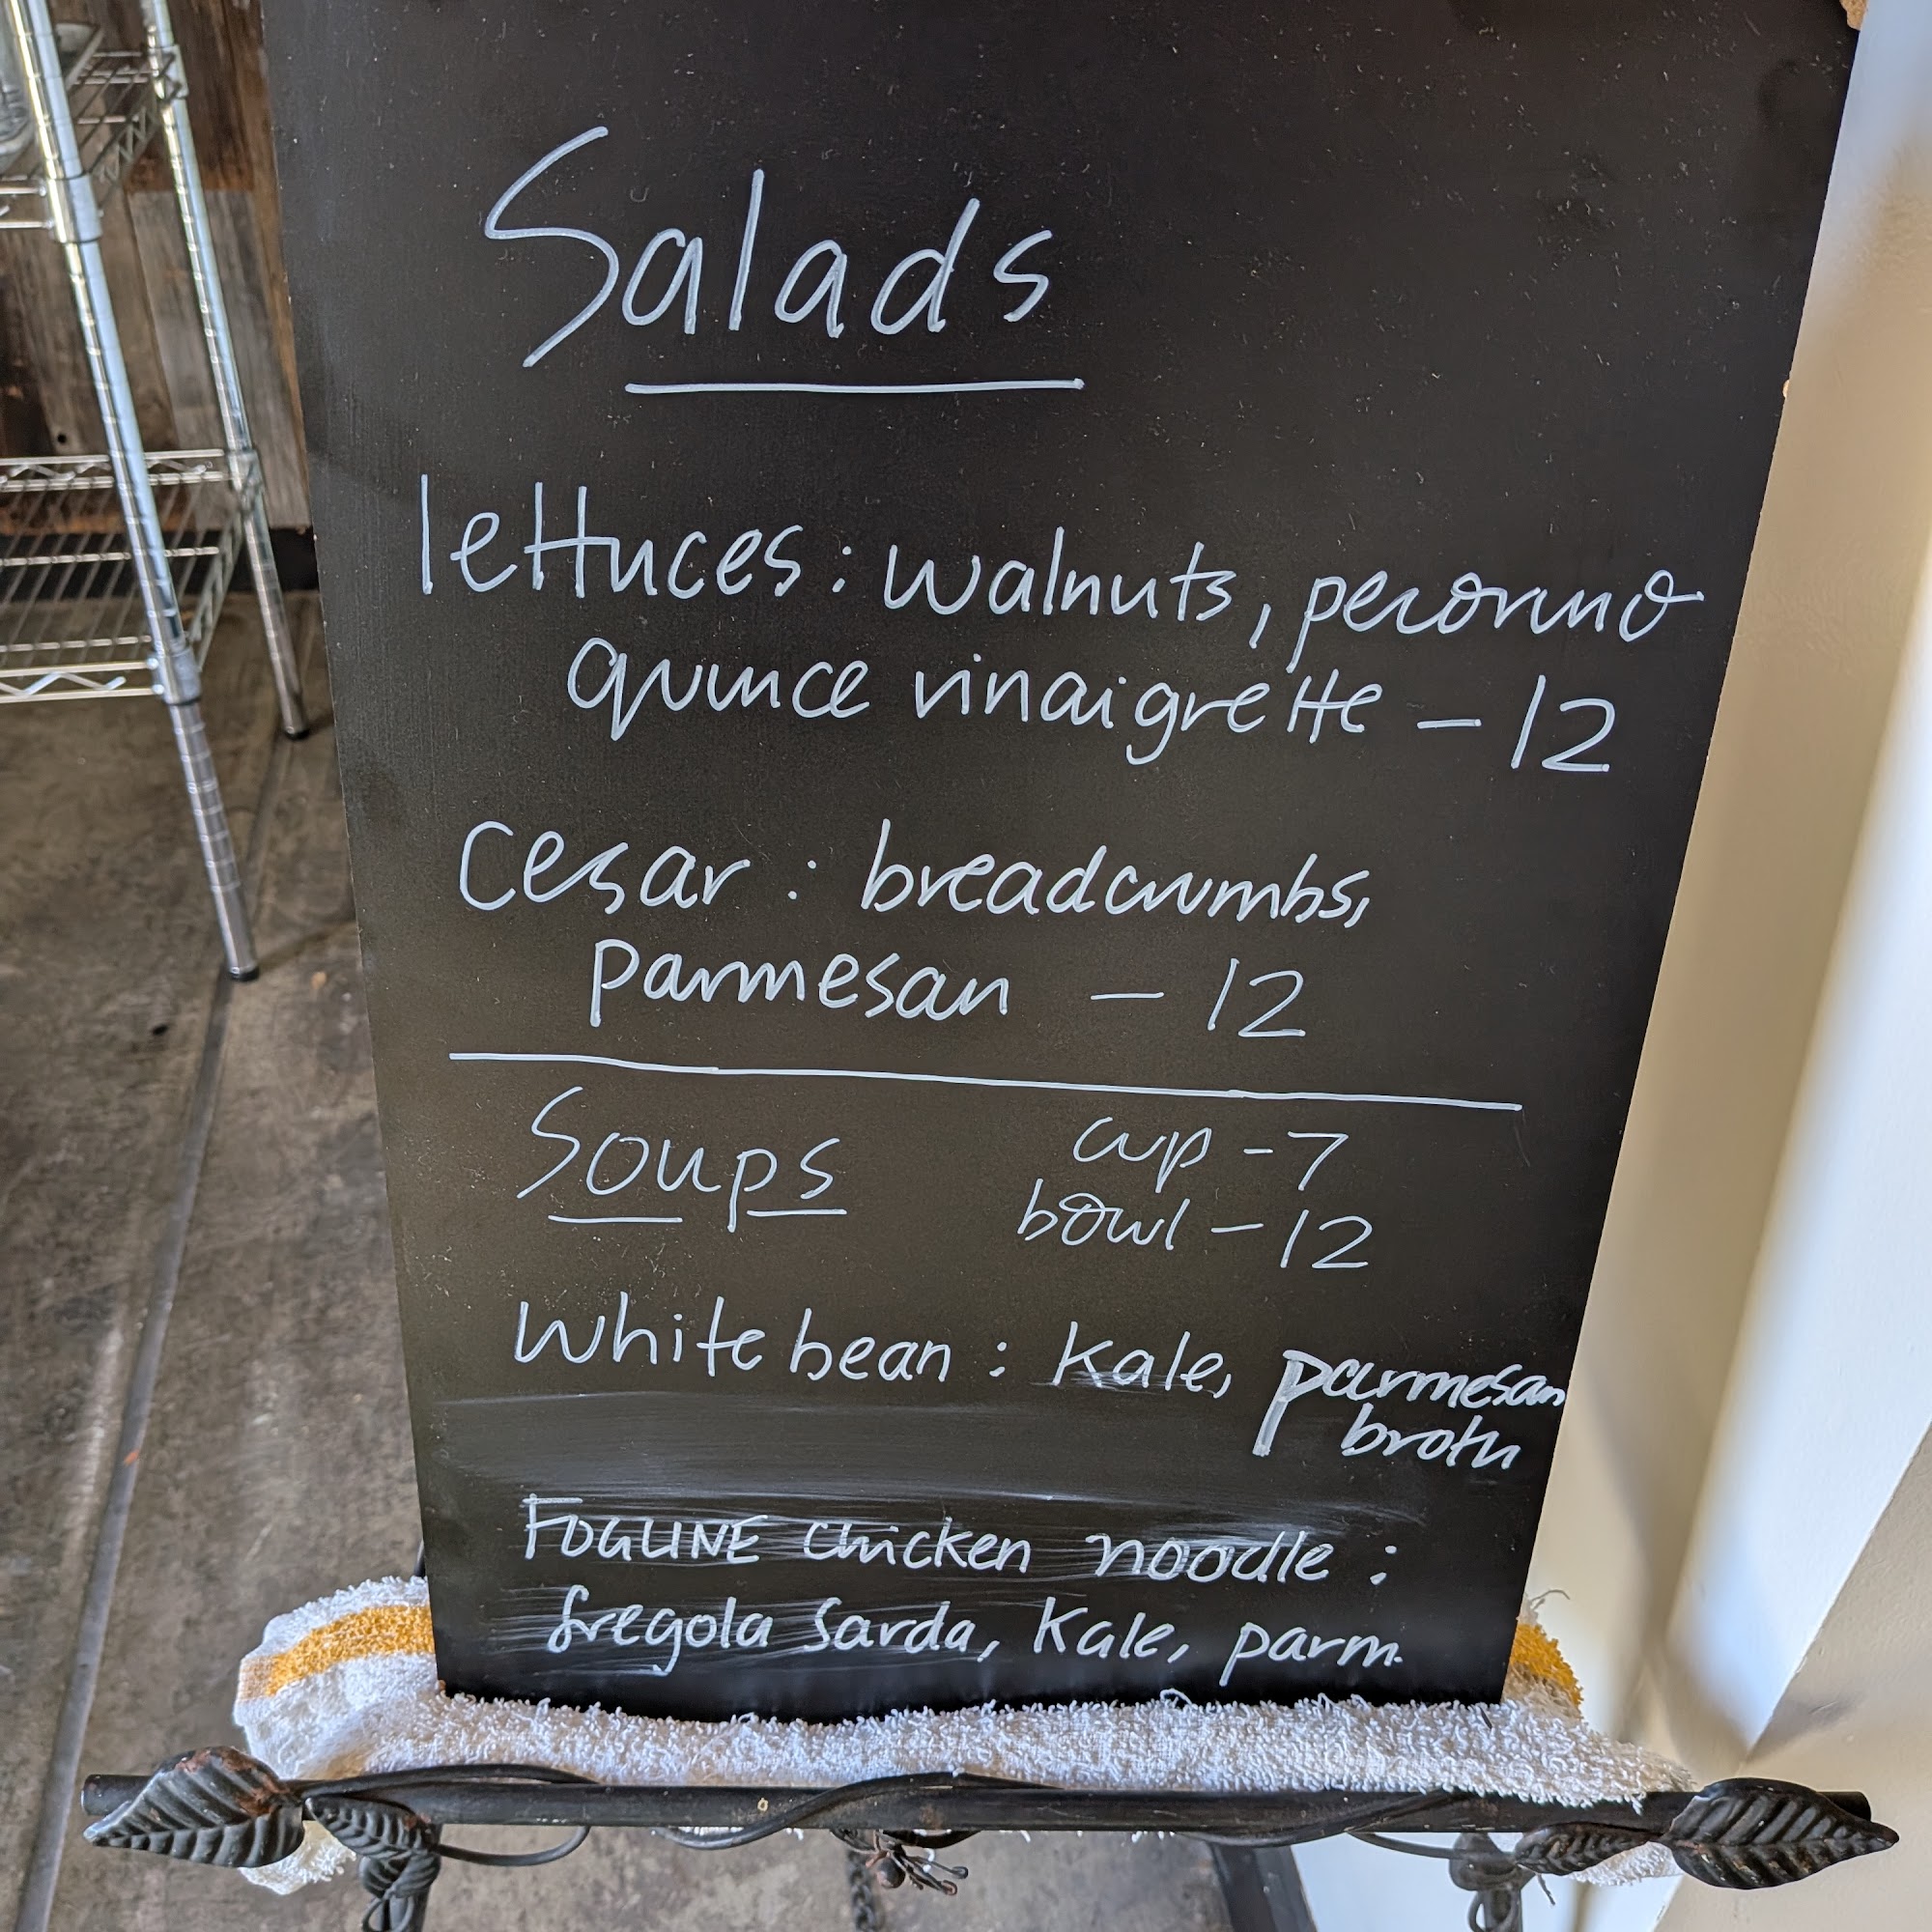 Salads
lettuces: walnuts, pecorino
quince vinaigrette - 12
Cesar: breadcrumbs,
parmesan - 12
Soups
cup - 7
bowl - 12
White bean: Kale, parmesan
broth
FOGLINE chicken noodle:
fregola sarda, Kale, parm.